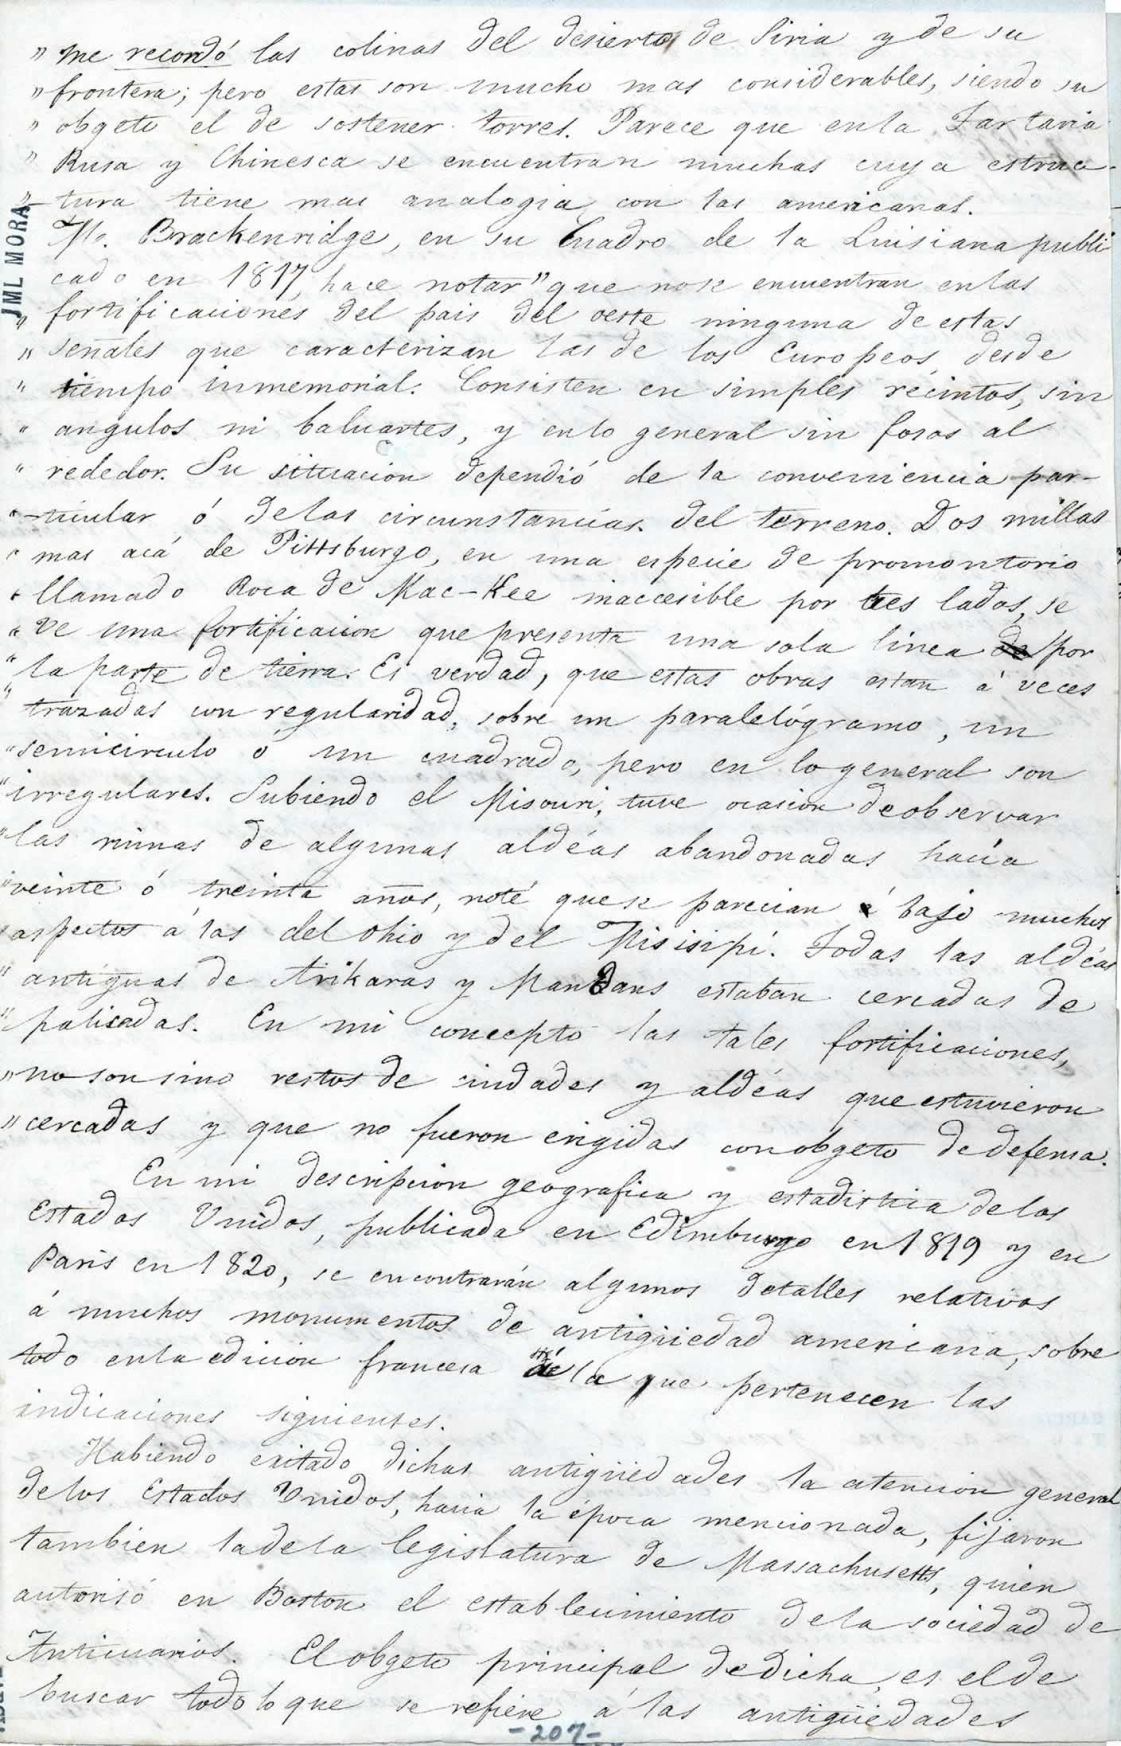 " me recordó las colinas del desierto de Siria y de su
" frontera; pero estas son mucho mas considerables, siendo su
" obgeto el de sostener torres. Parece que en la Tartaria
" Rusa y Chinesca se encuentran muchas cuya estruc-
" tura tiene mas analogia con las americanas.
Mr. Brackenridge, en su Cuadro de la Luisiana publi
cado en 1817, hace notar "que no se encuentran en las
" fortificaciones del pais del oeste ninguna de estas
" señales que caracterizan las de los Europeos desde
" tiempo inmemorial. Consisten en simples récintos, sin
" angulos ni baluartes, y en lo general sin fosos al
" rededor. Su situacion dependió de la conveniencia par-
" -ticular ó de las circunstancias del terreno. Dos millas
" mas acá de Pittsburgo, en una especie de promontorio
" llamado Roca de Mac-Kee inaccesible por tres lados, se
" ve una fortificacion que presenta una sola linea de por
" la parte de tierra. Es verdad, que estas obras estan á veces
" trazadas con regularidad, sobre un paralelógramo, un
" semicirculo ó un cuadrado, pero en lo general son
" irregulares. Subiendo el Misouri, tuve ocasion de observar
" las ruinas de algunas aldéas abandonadas hacía
" veinte ó treinta años, noté que se parecian á bajo muchos
" aspectos á las del Ohio y del Misisipí. Todas las aldéas
" antiguas de Arikaras y Mandans estaban cercadas de
" palisadas. En mi concepto las tales fortificaciones,
" no son sino restos de ciudades y aldéas que estuvieron
" cercadas y que no fueron erigidas con obgeto de defensa.
En mi descripcion geografica y estadistica de los
Estados Unidos, publicada en Edimburgo en 1819 y en
Paris en 1820, se encontrarán algunos detalles relativos
á muchos monumentos de antigüedad americana, sobre
todo en la edicion francesa á la que pertenecen las
indicaciones siguientes.
Habiendo exitado dichas antigüedades la atencion general
de los Estados Unidos, hacia la época mencionada, fijaron
tambien la de la legislatura de Massachusetts, quien
autorisó en Boston el establecimiento de la sociedad de
Anticuarios. El obgeto principal de dicha, es el de
buscar todo lo que se refiere á las antigüedades
-207-
JML MORA